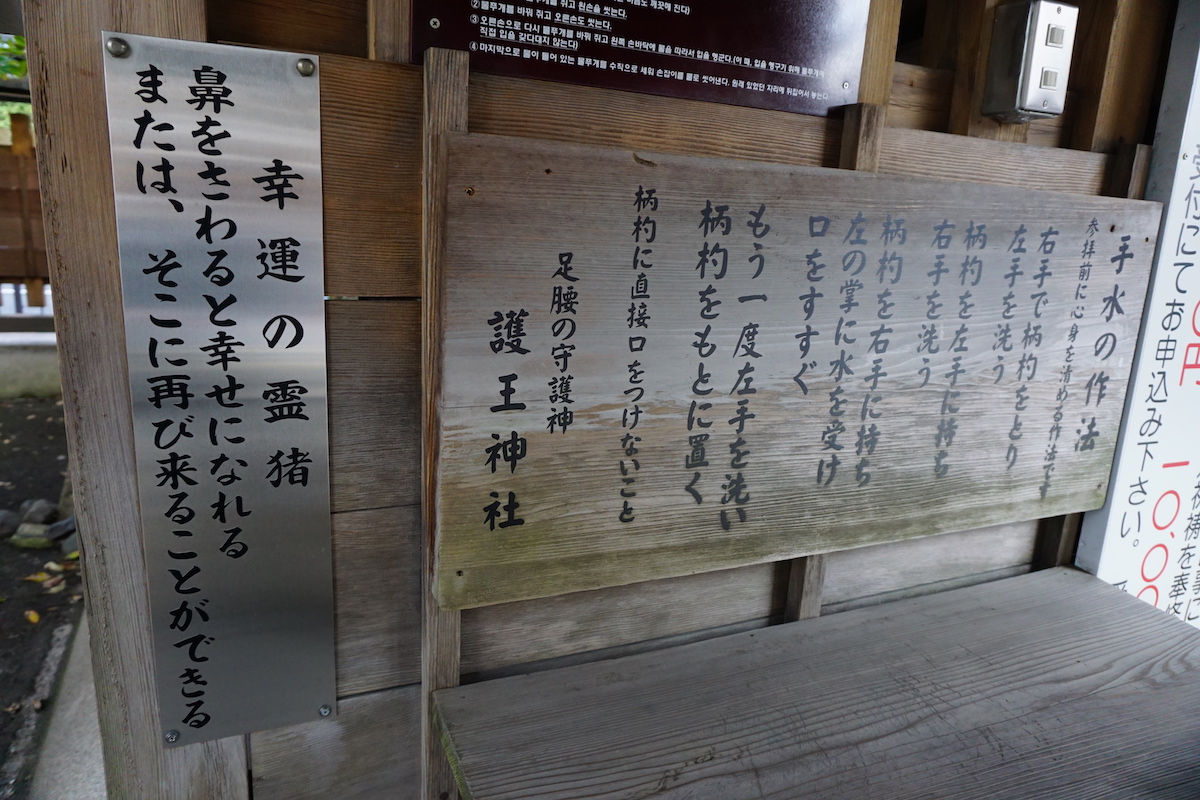 幸運の霊猪
鼻をさわると幸せになれる
または、そこに再び来ることができる
②물푸개를 바꿔 쥐고 오른손도 씻는다.
③오른손으로 다시 물푸개를 바꿔 쥐고 왼쪽 손바닥에 물을 따라서 입을 헹군다.(이 때, 입을 헹구기 위해 물푸개에
직접 입을 갖다대지 않는다)
④마지막으로 물이 들어 있는 물푸개를 수직으로 세워 손잡이를 물로 씻어낸다. 원래 있었던 자리에 뒤집어서 놓는다.
手水の作法
参拝前に心身を清める作法です
右手で柄杓をとり
左手を洗う
柄杓を左手に持ち
右手を洗う
柄杓を右手に持ち
左の掌に水を受け
口をすすぐ
もう一度左手を洗い
柄杓をもとに置く
柄杓に直接口をつけないこと
足腰の守護神
護王神社
受付にてお申込み下さい。